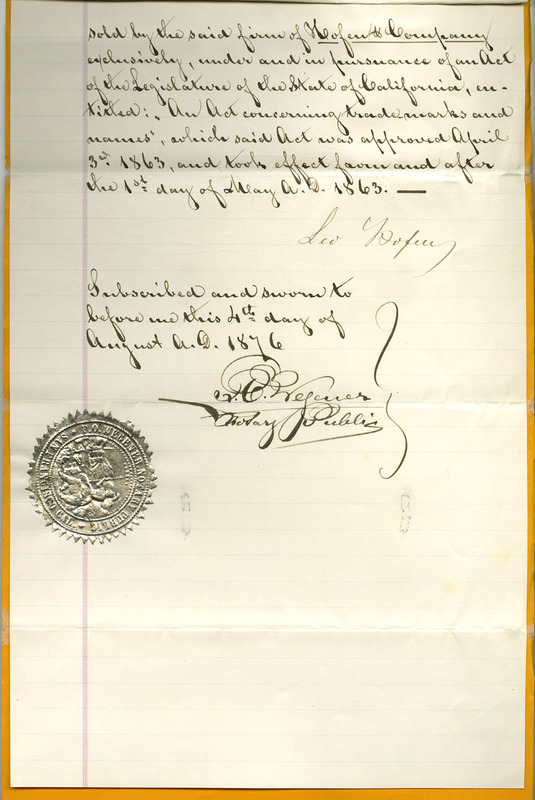 sold by the said firm of Hofen & Company
exclusively, under and in pursuance of an Act
of the Legislature of the State of California, en-
titled: „An Act concerning trade marks and
names", which said Act was approved April
3rd 1863, and took effect from and after
the 1st day of May A.D. 1863. —
Leo Hofen
Subscribed and sworn to
before me this 4th day of
August A.D. 1876
Wegener
Notary Public
NOTARY PUBLIC